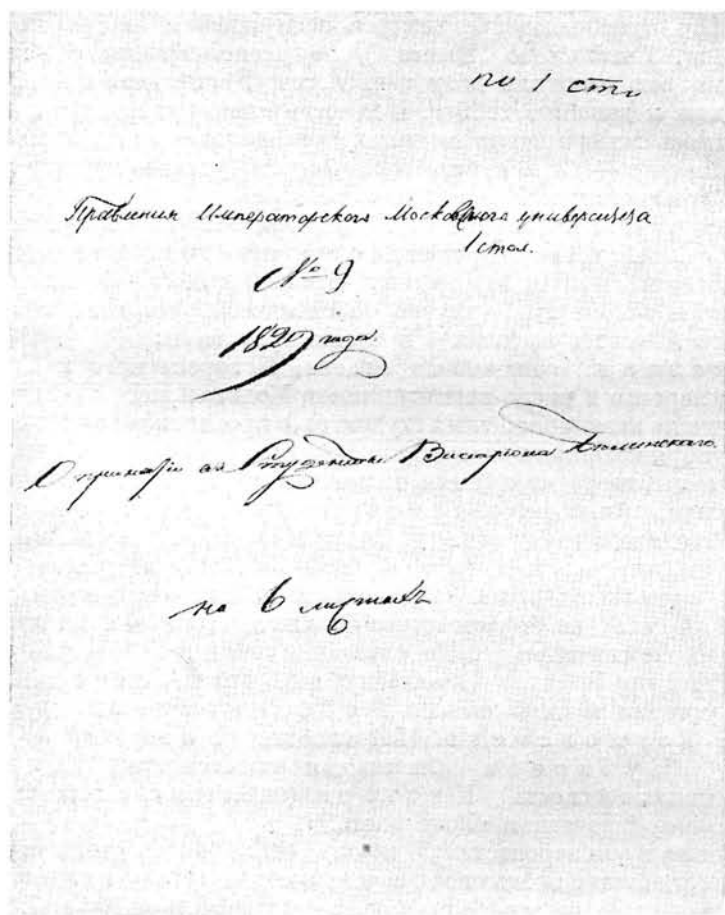 по 1 сто
Правления Императорского Московского университета
1 стол.
№ 9
1829 года.
О принятіи въ Студенты Висаріона Бѣлинского
на 6 листахъ